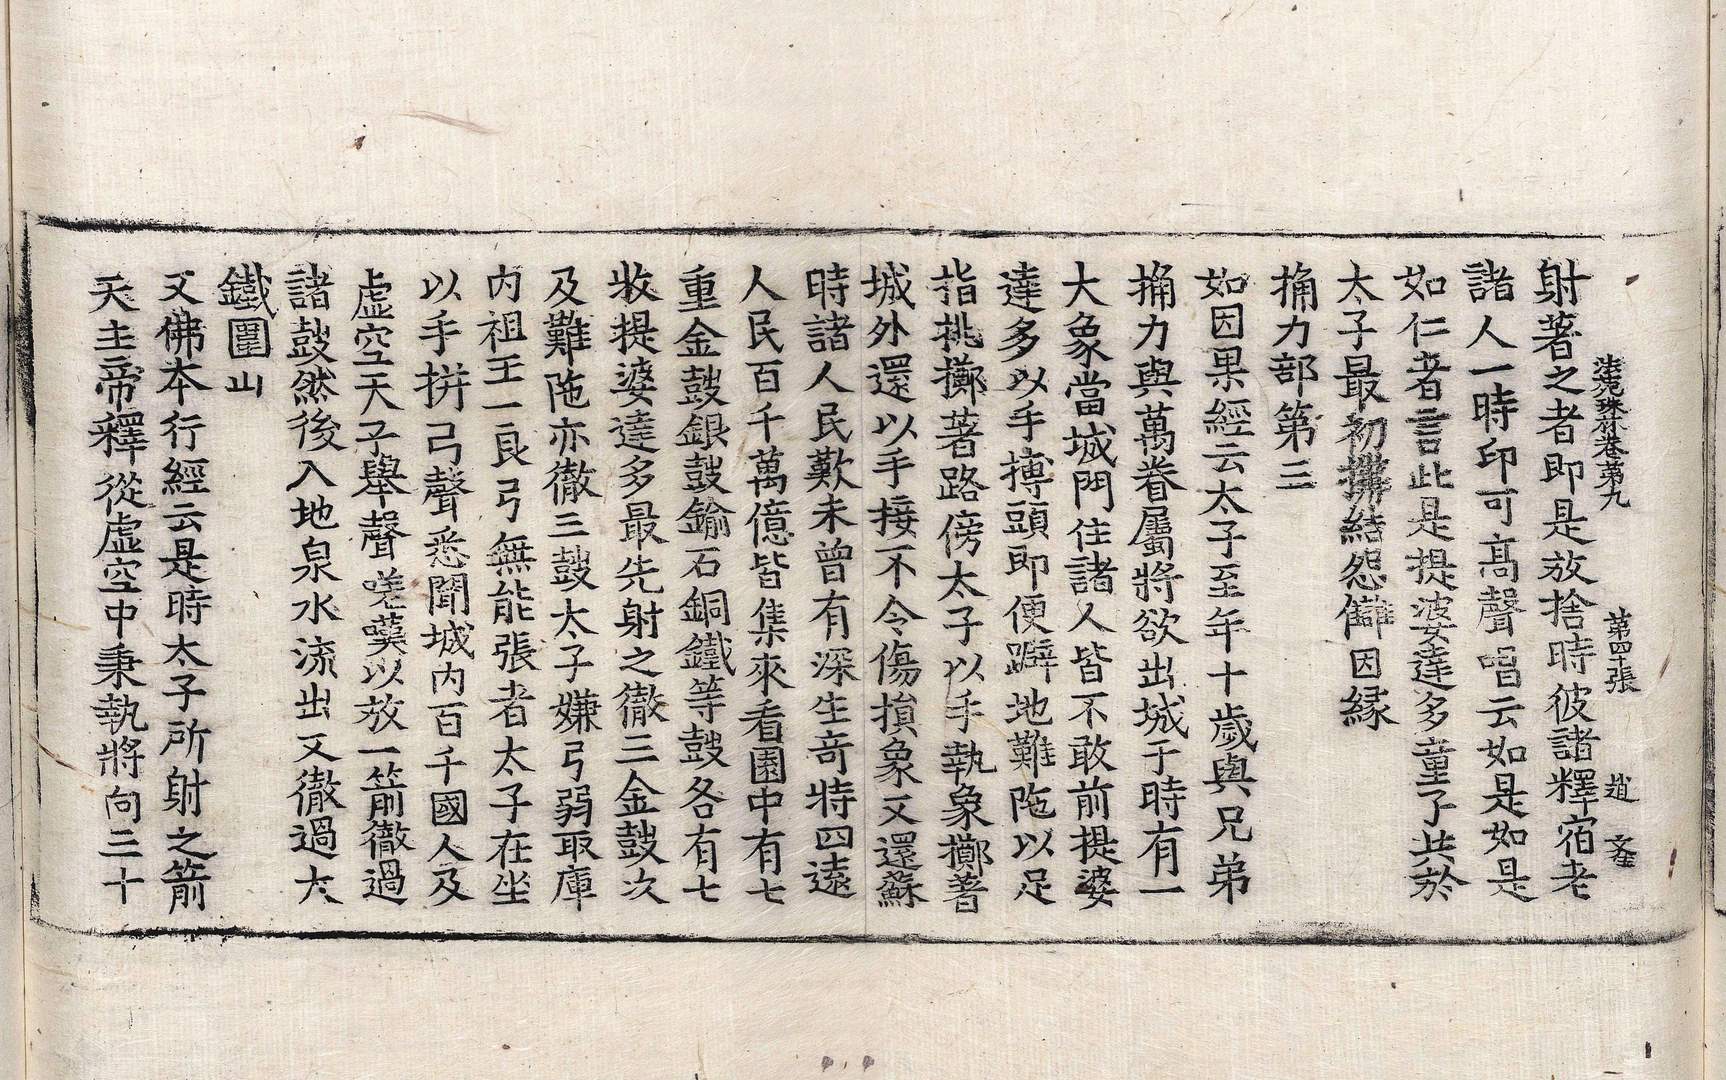 法苑珠林卷第九 第四張 趙 文
射著之者即是放捨時彼諸釋宿老
諸人一時印可高聲唱云如是如是
如仁者言此是提婆達多童子共於
太子最初構結怨讎因縁
捔力部第三
如因果經云太子至年十歲與兄弟
捔力與萬眷屬將欲出城于時有一
大象當城門住諸人皆不敢前提婆
達多以手搏頭即便躃地難陁以足
指挑擲著路傍太子以手執象擲著
城外還以手接不令傷損象又還蘇
時諸人民歎未曾有深生竒特四遠
人民百千萬億皆集來看園中有七
重金鼓銀鼓鍮石銅鐵等鼓各有七
枚提婆達多最先射之徹三金鼓次
及難陁亦徹三鼓太子嫌弓弱取庫
内祖王一良弓無能張者太子在坐
以手拼弓聲悉聞城内百千國人及
虛空天子舉聲嗟歎以放一箭徹過
諸鼓然後入地泉水流出又徹過大
鐵圍山
又佛本行經云是時太子所射之箭
天主帝釋從虛空中秉執將向三十